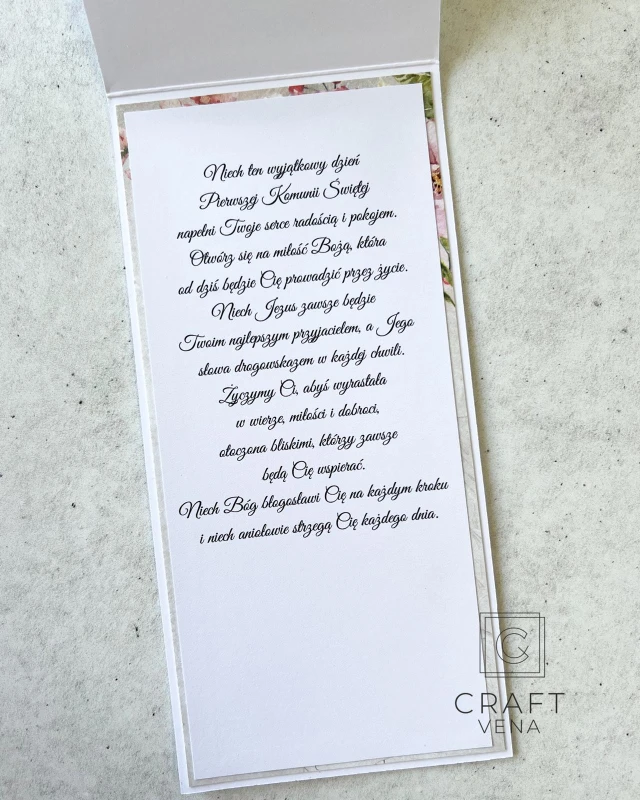 Niech ten wyjątkowy dzień
Pierwszej Komunii Świętej
napełni Twoje serce radością i pokojem.
Otwórz się na miłość Bożą, która
od dziś będzie Cię prowadzić przez życie.
Niech Jezus zawsze będzie
Twoim najlepszym przyjacielem, a Jego
słowa drogowskazem w każdej chwili.
Życzymy Ci, abyś wyrastała
w wierze, miłości i dobroci,
otoczona bliskimi, którzy zawsze
będą Cię wspierać.
Niech Bóg błogosławi Cię na każdym kroku
i niech aniołowie strzegą Cię każdego dnia.
C
CRAFT
VENA